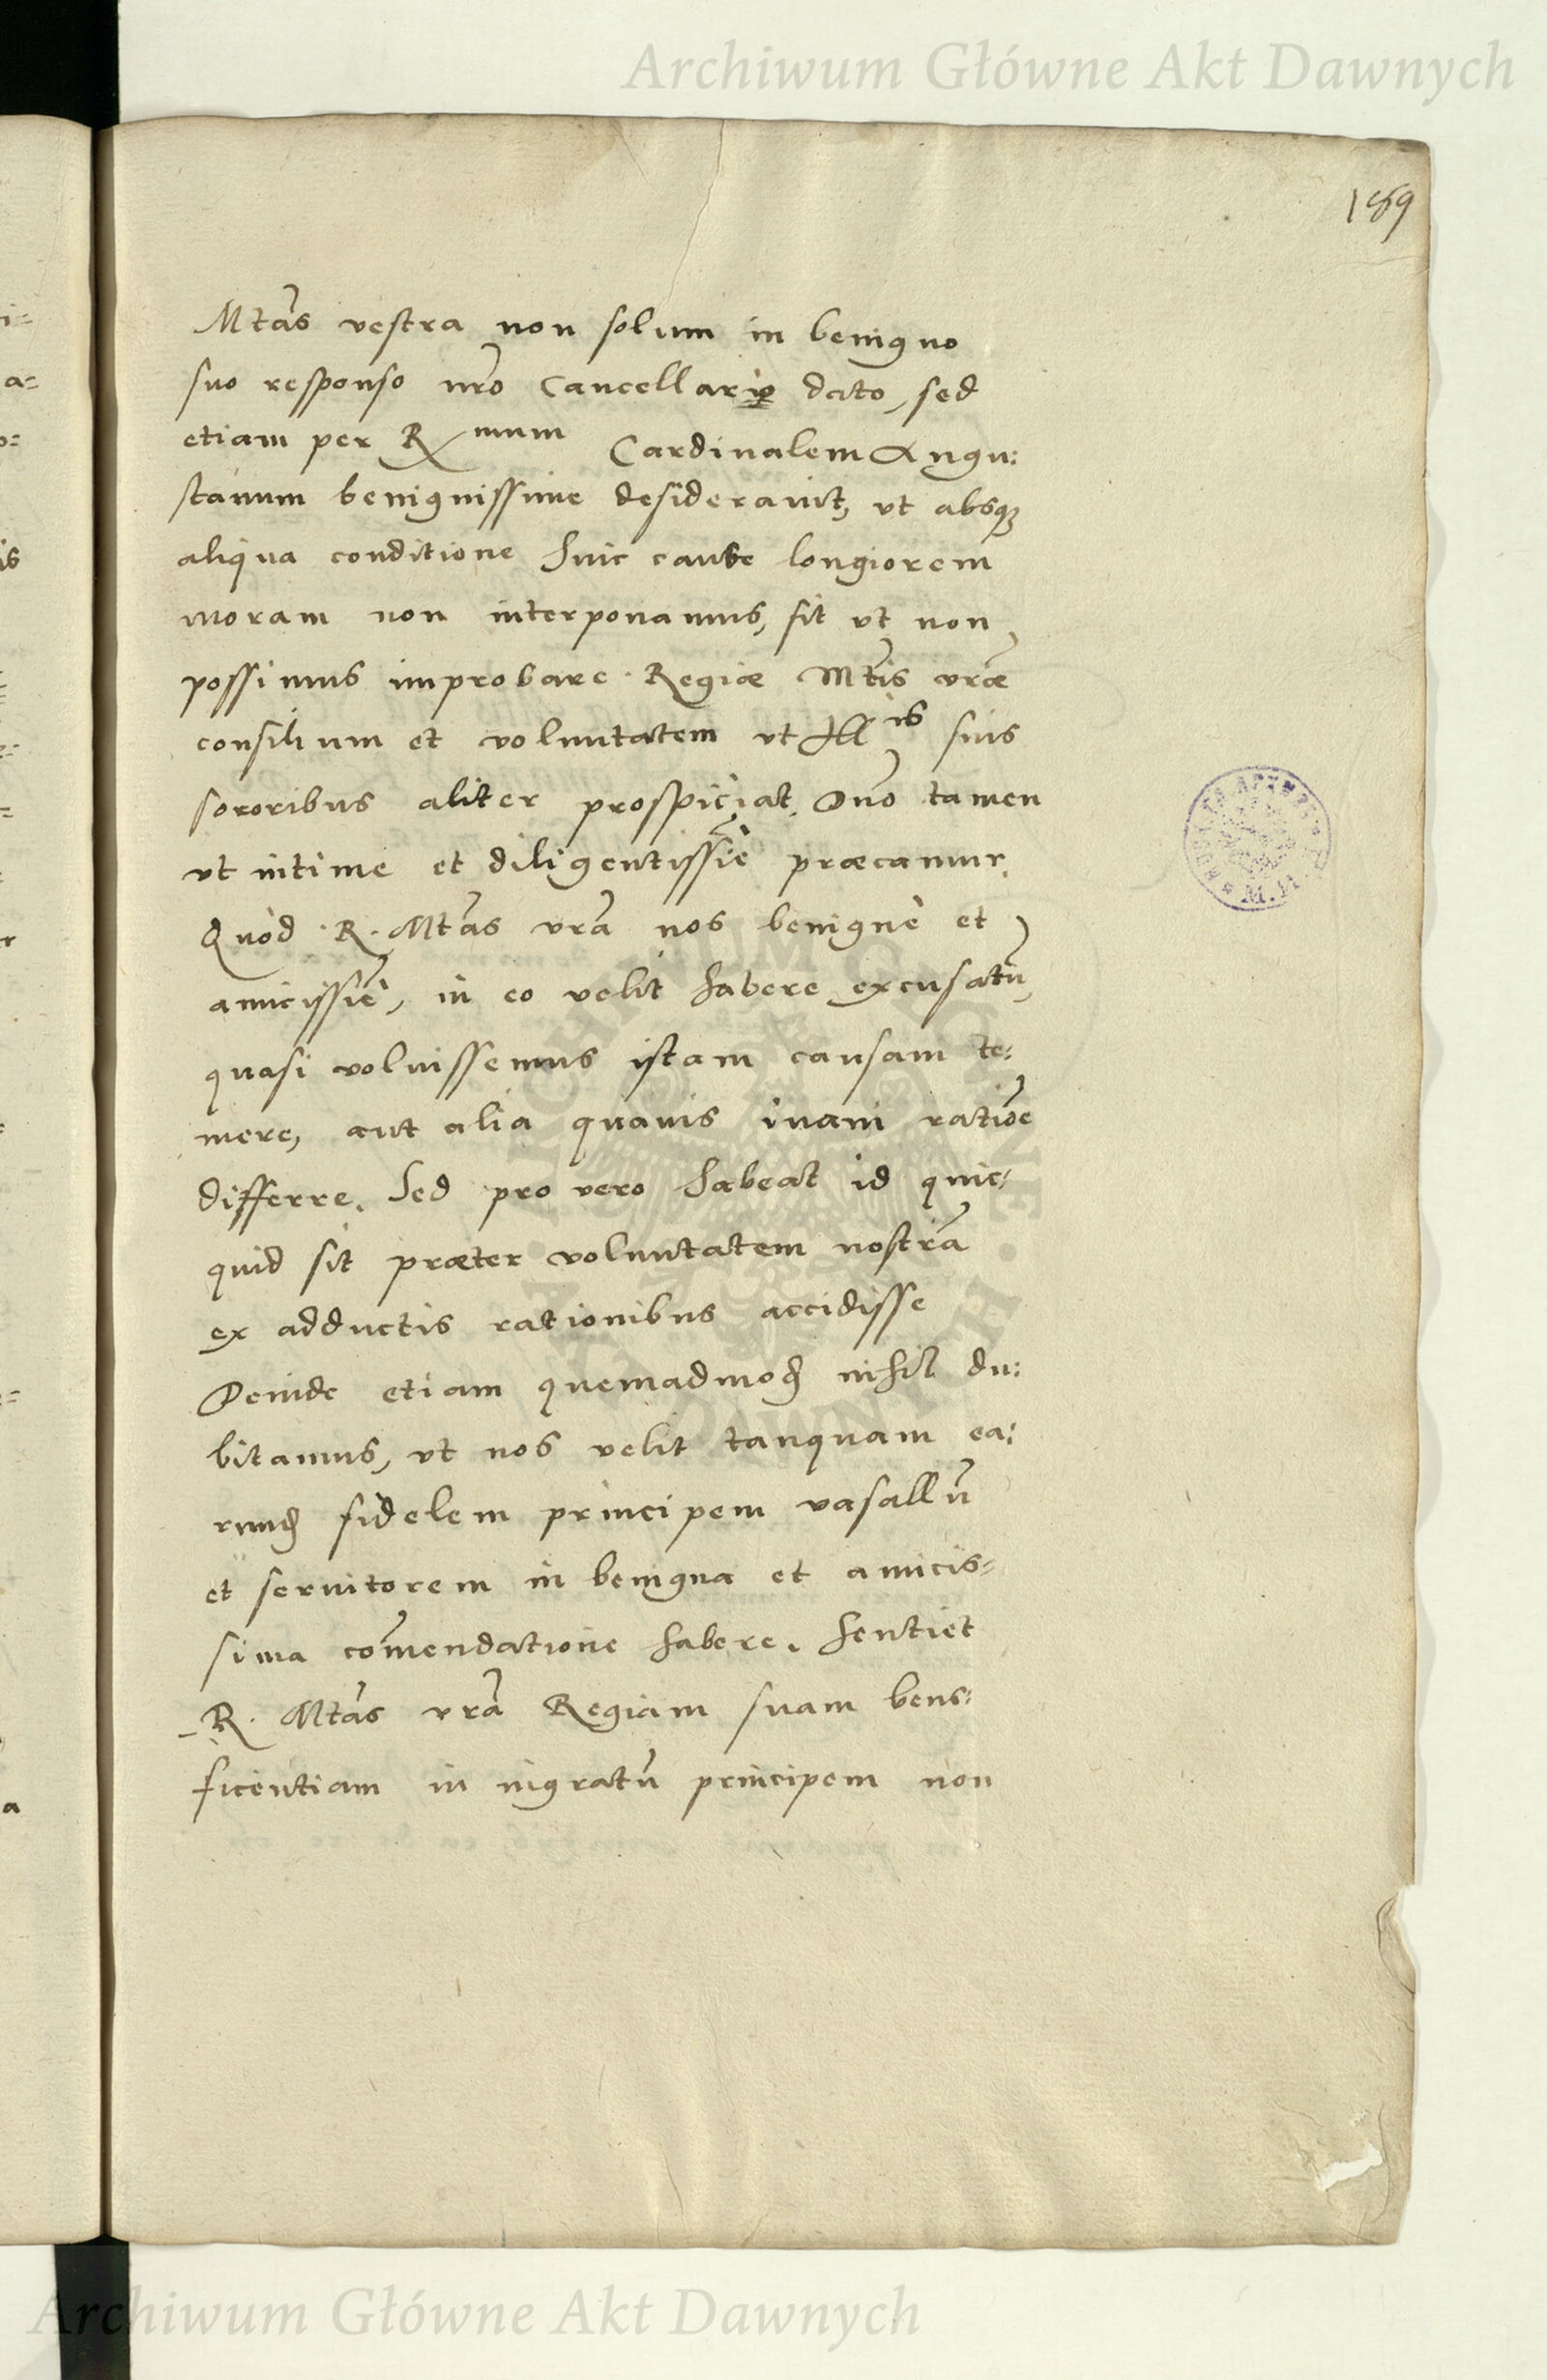 Archiwum Główne Akt Dawnych
189
Mtas vestra non solum in benigno
suo responso nro Cancellario dato, sed
etiam per R mum Cardinalem Augu:
stanum benignissime desiderauit, ut absq
aliqua conditione huic causae longiorem
moram non interponamus, fit ut non
possimus improbare Regiae Mtis vrae
consilium et voluntatem ut Ill is suis
sororibus aliter prospiciat. Duo tamen
ut intime et diligentissie praecamur.
Quod R. Mtas vra nos benigne et
amicissie, in eo velit habere excusatu,
quasi voluissemus istam causam te:
mere, aut alia quauis inani ratioe
differre. Sed pro vero habeat id quic=
quid sit praeter voluntatem nostra
ex adductis rationibus accidisse
Deinde etiam quemadmod nihil du:
bitamus, ut nos velit tanquam ea:
rund fidelem principem vasallu
et seruitorem in benigna et amicis=
sima comendatione habere. Sentiet
R. Mtas vra Regiam suam bene=
ficentiam in ingratu principem non
Archiwum Główne Akt Dawnych